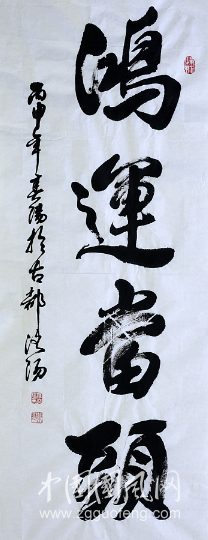 鴻運當頭
丙申年春陽於古都洛陽
中国国风网
www.zgguofeng.com